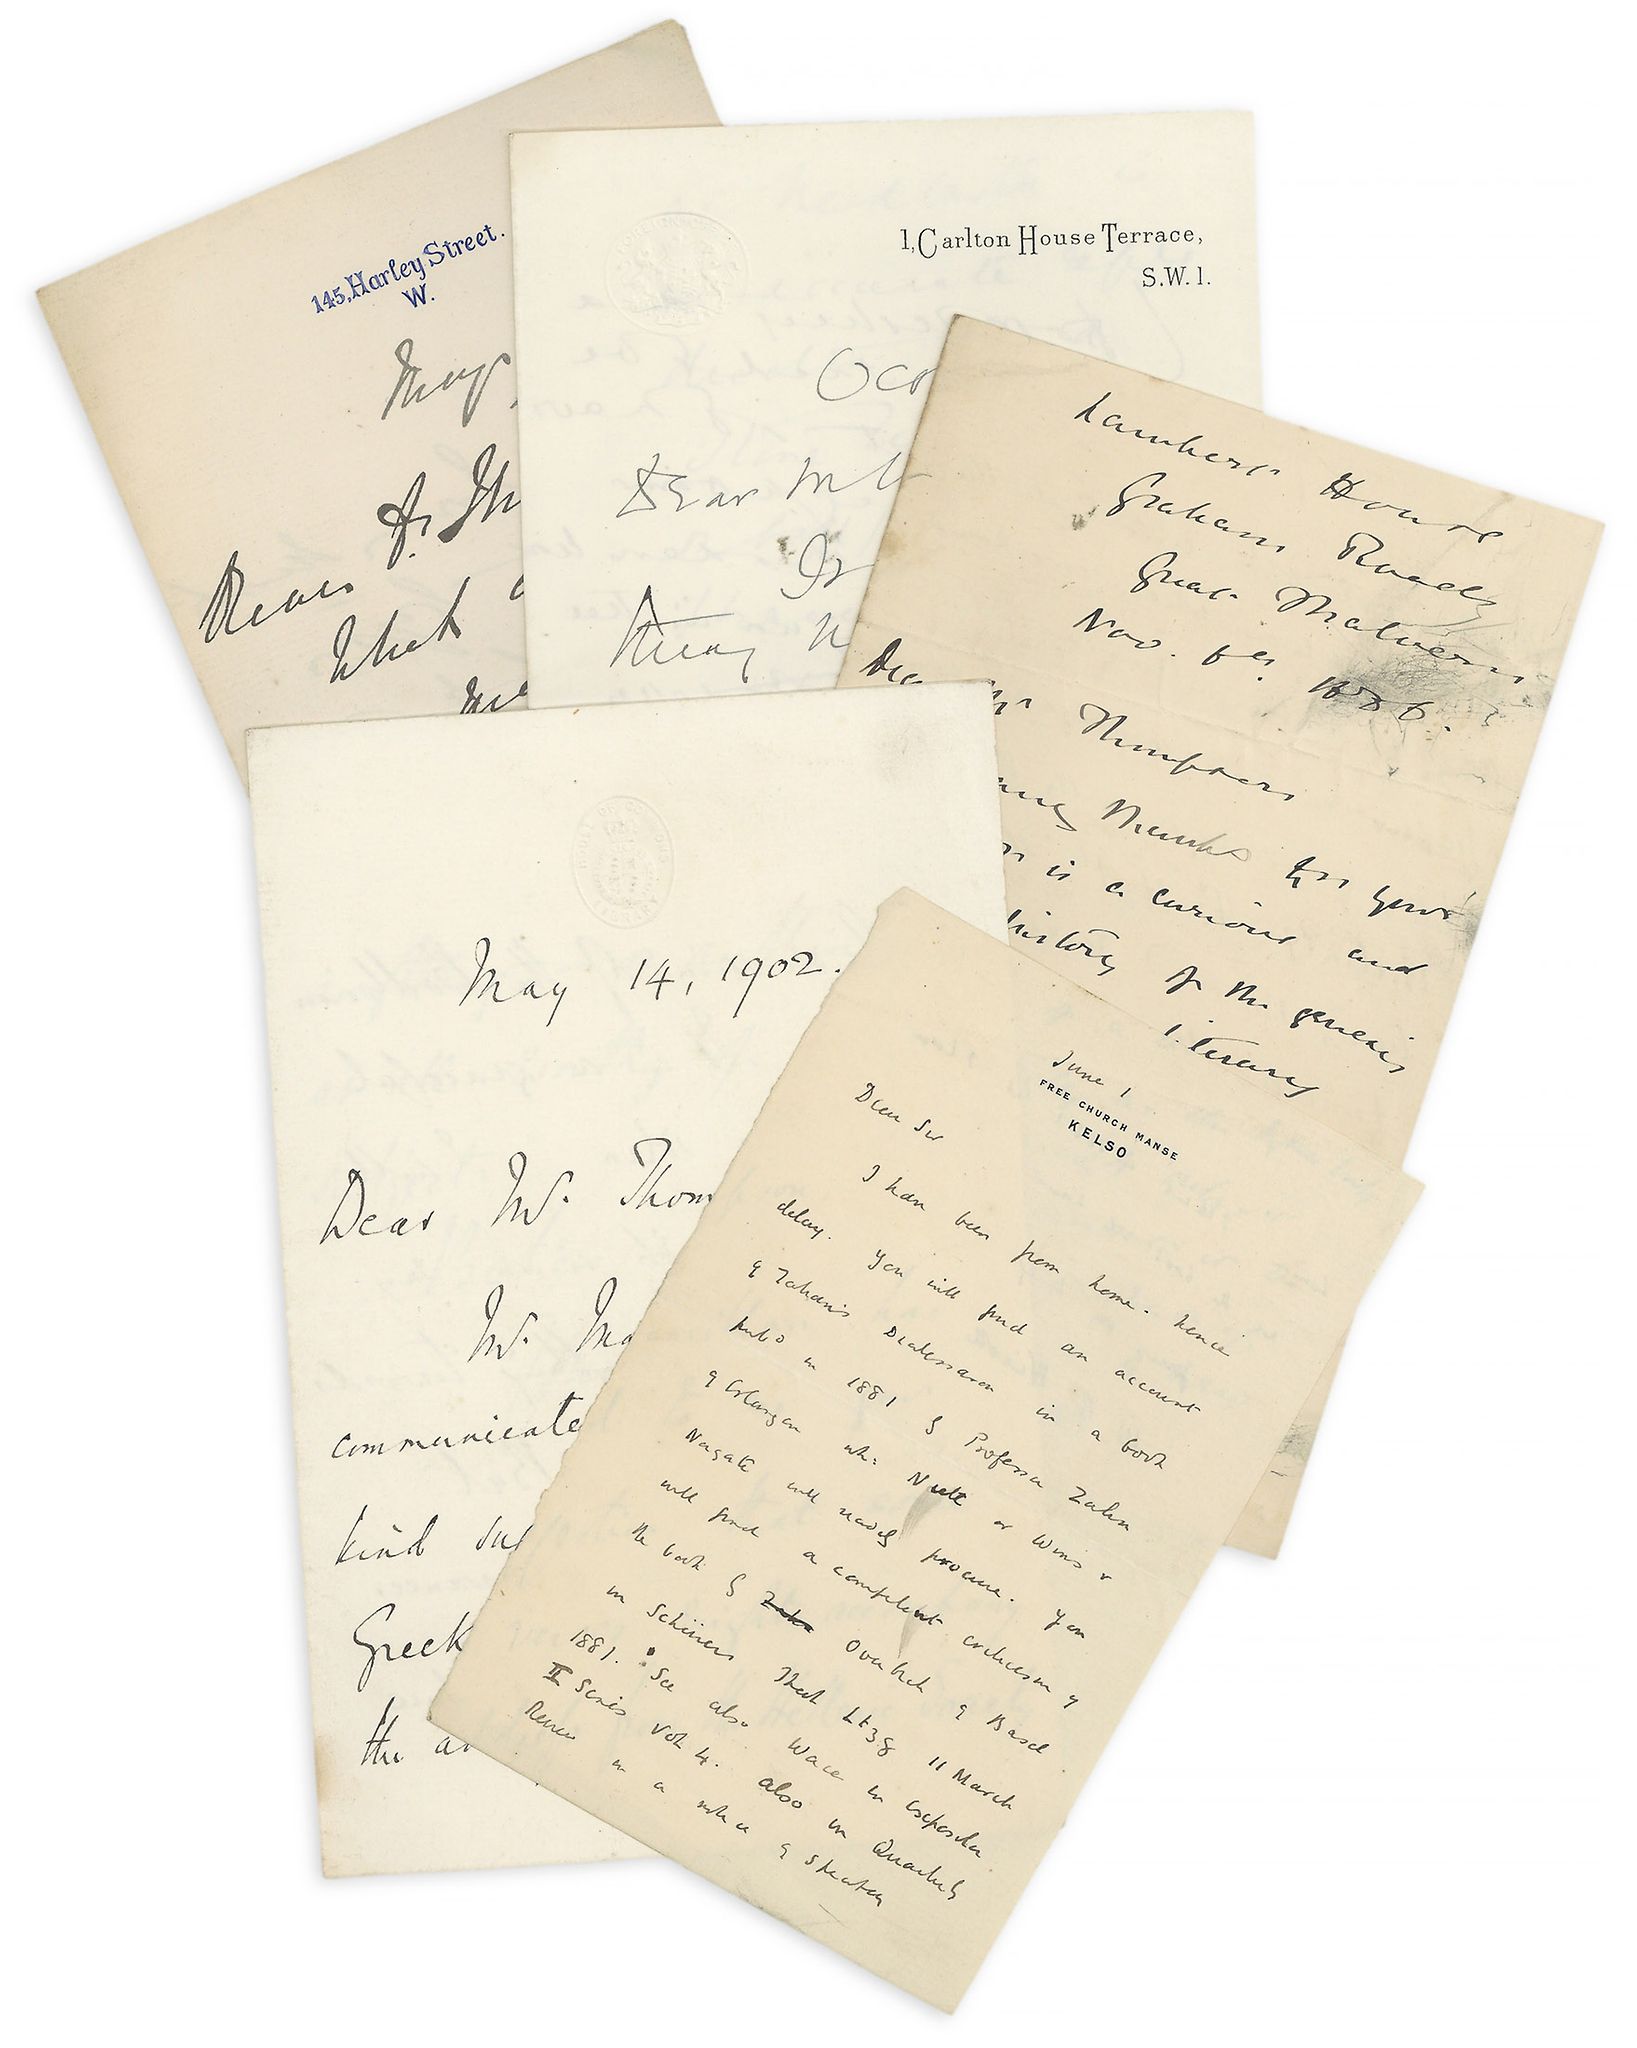 145, Harley Street.
W.
May
Dear Dr. Th
What
me
1, Carlton House Terrace,
S.W.1.
Oct
Dear Mr
In
away
House
Graham Road
Great Malvern
Nov. 6th
Dear Mr Thompson
many thanks for your
is a curious and
history of the genesis
literary
May 14, 1902.
Dear Mr. Thom
Mr. Ma
communicate
kind
Greek
the
June 1
FREE CHURCH MANSE
KELSO
Dear Sir
I have been from home. hence
delay. You will find an account
of Tatian's Diatessaron in a book
pub. in 1881 by Professor Zahn
of Erlangen wh. Nutt or Wms &
Norgate will readily procure. You
will find a complete criticism of
the book by Zahn Overbeck of Basel
in Schürers Theol Ltzg 11 March
1881. See also Wace in Expositor
II Series Vol 4. also in Quarterly
Review in a notice of